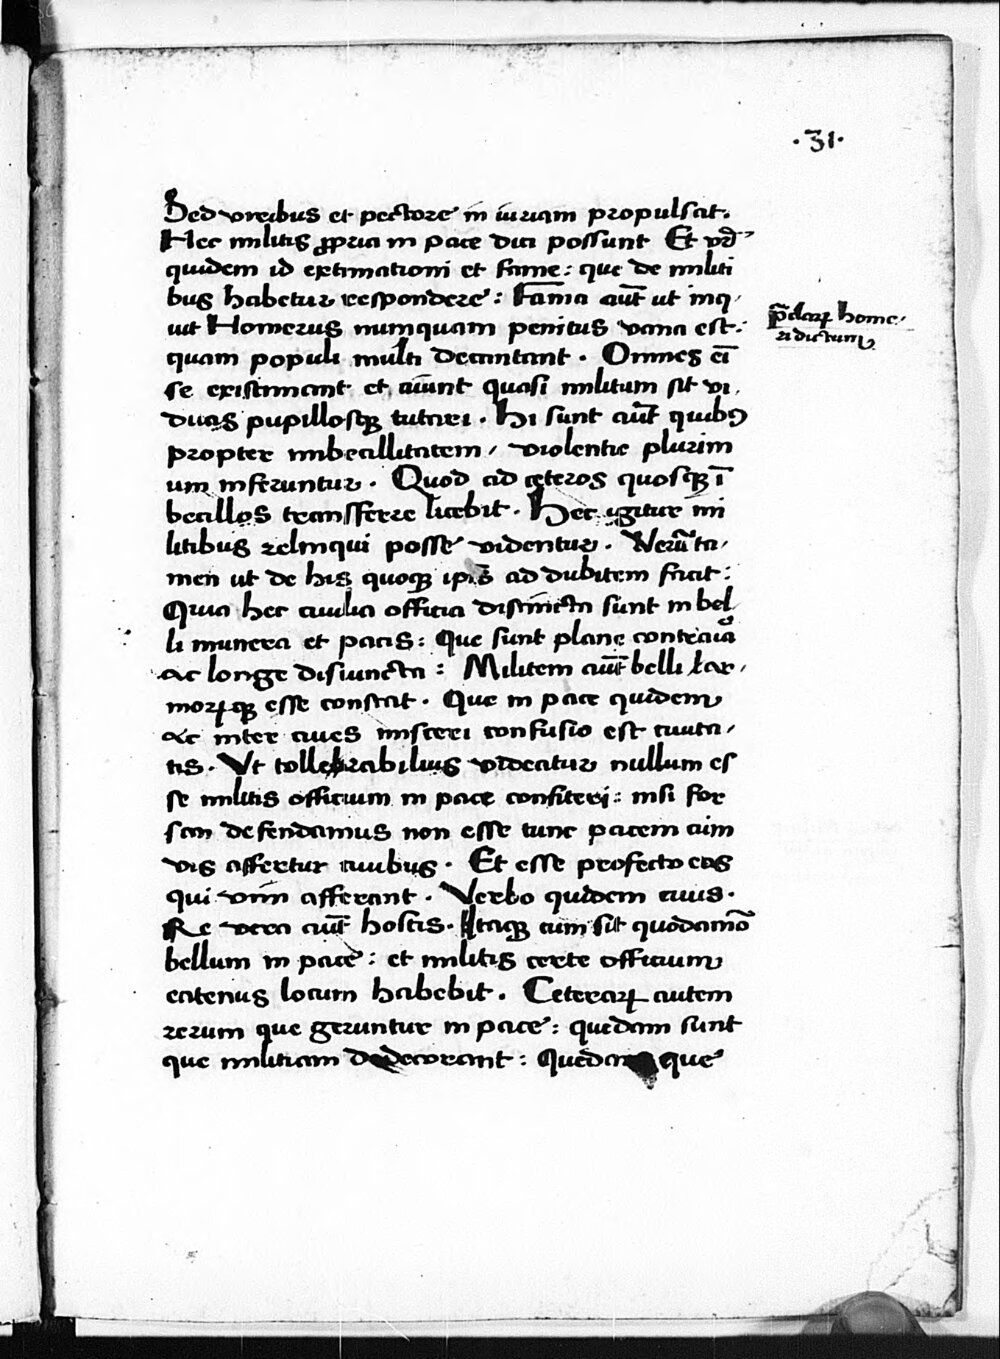 ·31·
Sed viribus et pectore in iuriam propulsat.
Hec militis ꝓpria in pace dici possunt Et vꝺ̄
quidem id extimationi et fame: que de militi
bus habetur respondere: Fama aut̄ ut inq,
uit Homerus numquam penitus vana est:
quam populi multi decantant. Omnes eī
se existimant et aiunt quasi militum sit vi,
duas pupillosqꝫ tutari. Hi sunt aut̄ quibꝰ
propter imbecillitatem, violentie plurim
um inferuntur. Quod ad ceteros quosqꝫ ī
becillos transferre licebit. Hec igitur mi
litibus relinqui posse videntur. Verūta,
men ut de his quoqꝫ ip̄is addubitem facit:
Quia hec ciuilia officia distincta sunt in bel,
li munera et pacis: Que sunt plane contraia
ac longe disiuncta: Militem aut̄ belli lar,
morꝝqꝫ esse constat. Que in pace quidem
ac inter ciues misceri confusio est ciuita,
tis. Ut tollerabilius videatur nullum es
se militis officium in pace confiteri: nisi for
san defendamus non esse tunc pacem cim
vis affertur ciuibus. Et esse profecto eos
qui vim afferant. Verbo quidem ciuis.
Re vera aut̄ hostis. Itaqꝫ cum sit quodamō
bellum in pace: et militis certe officium
eatenus locum habebit. Ceterarꝝ autem
rerum que geruntur in pace: quedam sunt
que militiam dedecorant: Quedam que
p̄clarꝝ home,
ri dictum